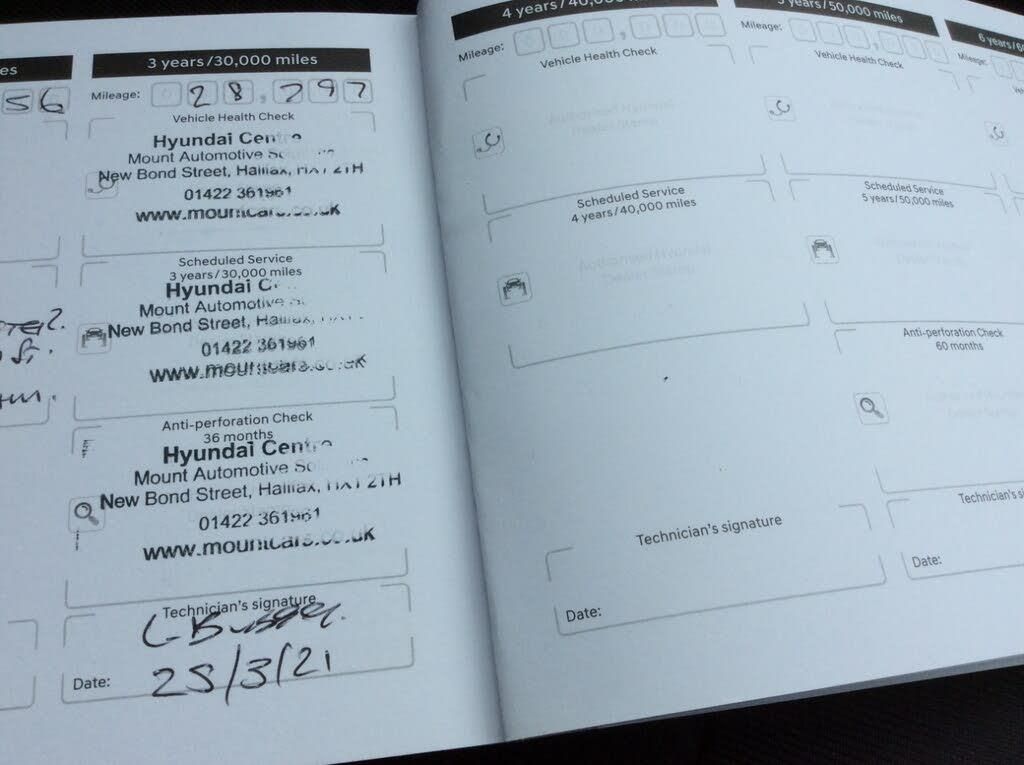 es
56
3 years/30,000 miles
Mileage: 0 28,797
Vehicle Health Check
Hyundai Centre
Mount Automotive
New Bond Street, Halifax, HX1 2TH
01422 361961
www.mountcars.co.uk
Scheduled Service
3 years/30,000 miles
Hyundai
Mount Automotive
New Bond Street, Halifax,
01422 361961
www.mountcars.co.uk
Anti-perforation Check
36 months
Hyundai Centre
Mount Automotive
New Bond Street, Halifax, HX1 2TH
01422 361961
www.mountcars.co.uk
Technician's signature
Date: 25/3/21
4 years/40,000
Mileage:
Vehicle Health Check
Authorised Hyundai
Dealer Stamp
Scheduled Service
4 years/40,000 miles
Authorised Hyundai
Dealer Stamp
Technician's signature
Date:
5 years/50,000 miles
Mileage:
Vehicle Health Check
Scheduled Service
5 years/50,000 miles
Anti-perforation Check
60 months
Technician's si
Date:
6 years/60
Mileage: